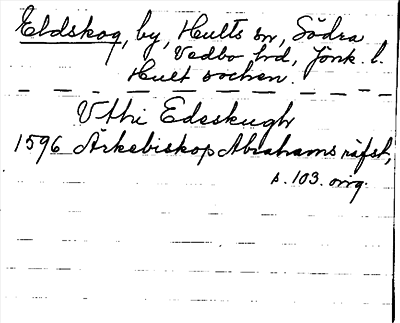 Eldskog, by, Hults sn, Södra
Vedbo hd, Jönk. l.
Hult socken.
Vthi Edeskugh
1596 Ärkebiskop Abrahams räfst,
s. 103. orig.